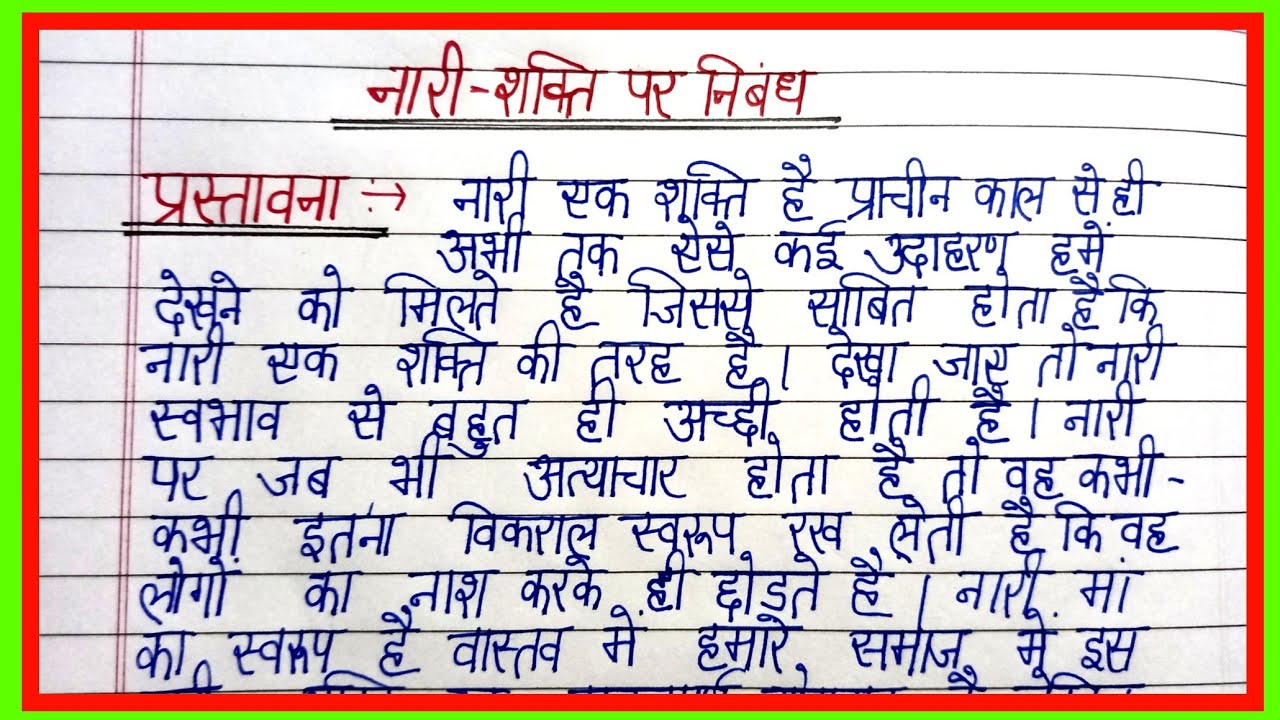 नारी-शक्ति पर निबंध
प्रस्तावना :→ नारी एक शक्ति है प्राचीन काल से ही
अभी तक ऐसे कई उदाहरण हमें
देखने को मिलते है जिससे साबित होता है कि
नारी एक शक्ति की तरह है। देखा जाए तो नारी
स्वभाव से बहुत ही अच्छी होती है। नारी
पर जब भी अत्याचार होता है तो वह कभी-
कभी इतना विकराल स्वरूप रख लेती है कि वह
लोगों का नाश करके ही छोड़ते है। नारी मां
का स्वरूप है वास्तव में हमारे समाज में इस